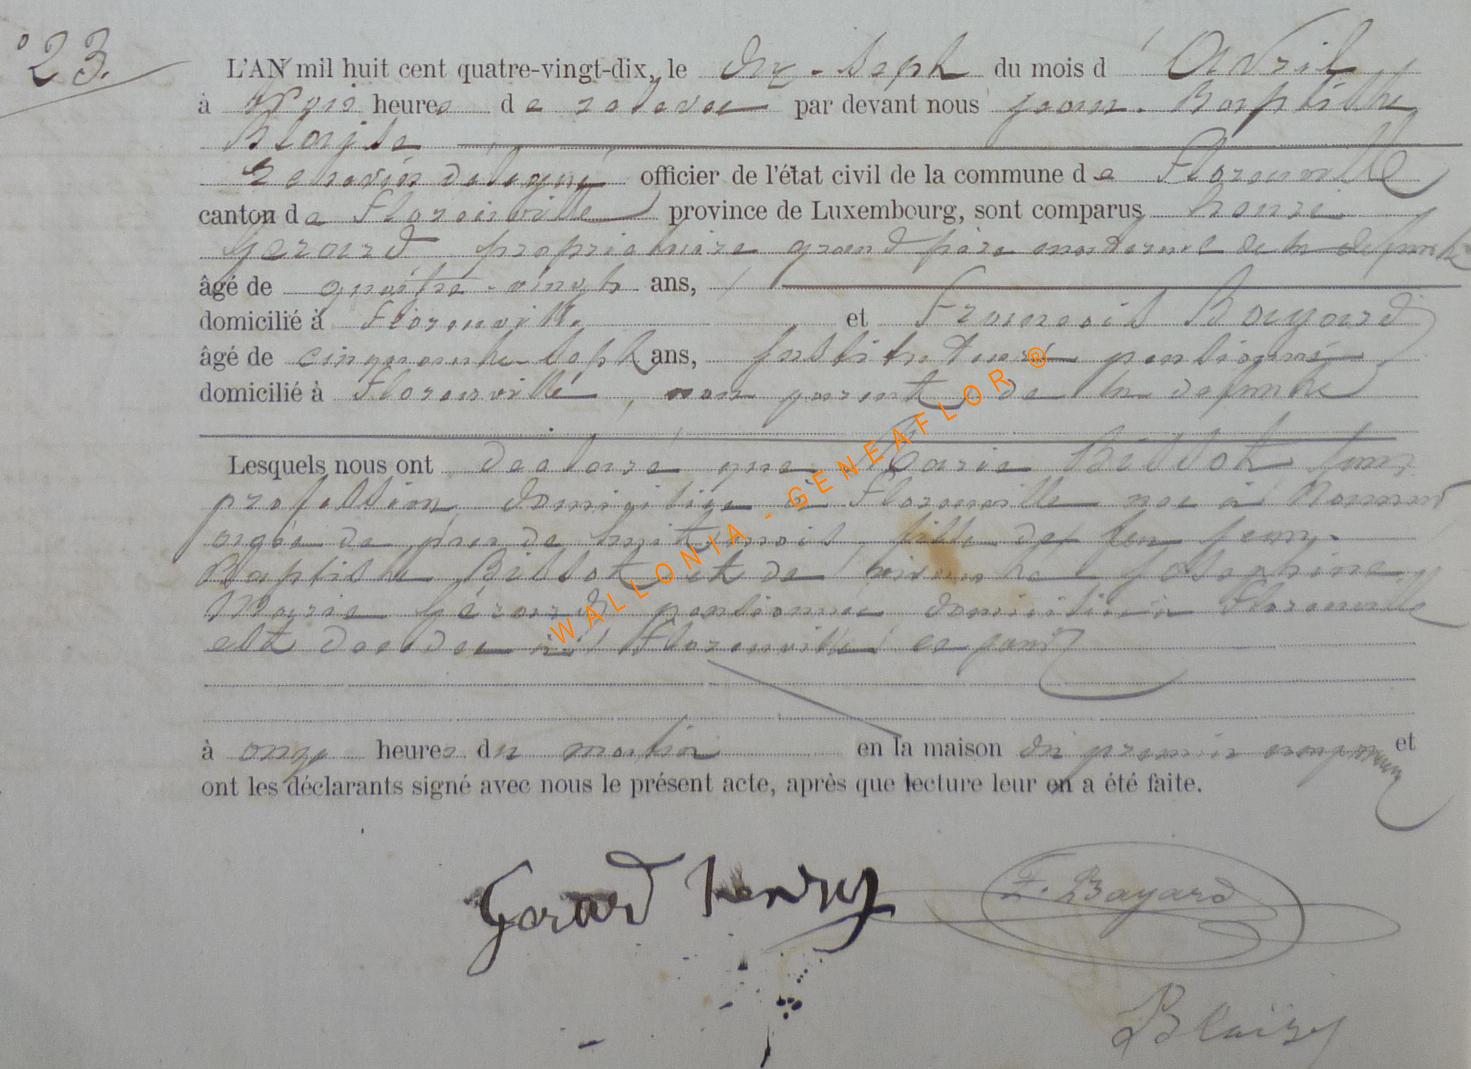 °23.
L'AN mil huit cent quatre-vingt-dix, le dix-sept du mois d'Avril
à trois heures de relevée par devant nous Jean-Baptiste
Blaise
Echevin délégué officier de l'état civil de la commune de Florenville
canton de Florenville province de Luxembourg, sont comparus Henri
Gérard propriétaire grand père maternel de la défunte
âgé de quatre-vingt ans,
domicilié à Florenville et François Bayard
âgé de cinquante-sept ans, Instituteur pensionné
domicilié à Florenville, non parent de la défunte
Lesquels nous ont déclaré que Marie Bissot sans
profession domiciliée à Florenville née à Namur
agée de près de huit mois, fille de feu Jean-
Baptiste Bissot et de vivante Joséphine
Marie Gérard pensionnée domiciliée à Florenville
est décédée à Florenville ce jourd'
à onze heures du matin en la maison du premier comparant et
ont les déclarants signé avec nous le présent acte, après que lecture leur en a été faite.
WALLONIA - GENEAFLOR ®
Gerard henry
F. Bayard
Blaisy